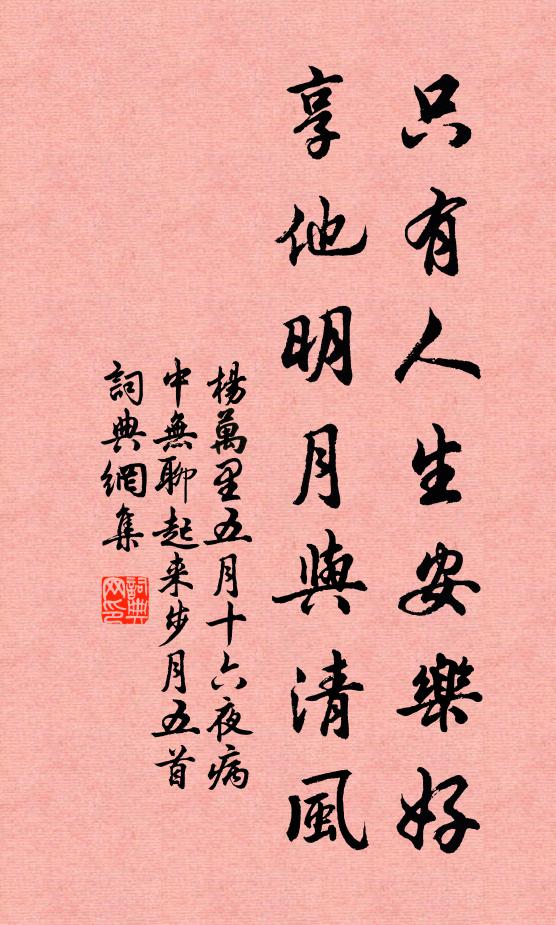 只有人生安樂好
享他明月與清風
楊萬里五月十六夜病
中無聊起来步月五首
詞典網集
詞典
网印